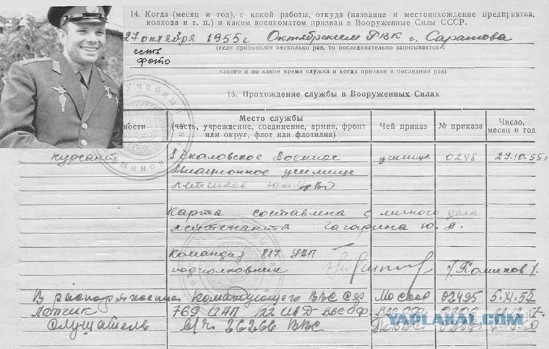 14. Когда (месяц и год), с какой работы, откуда (название и местонахождение предприятия,
колхоза и т. п.) и каким военкоматом призван в Вооруженные Силы СССР.
27 октября 1955 г. Октябрьским РВК г. Саратова
есть
фото
(если призывался несколько раз, то последовательно записывается)
какого и по какое время служил и когда призван в последний раз)
15. Прохождение службы в Вооруженных Силах
Место службы
(часть, учреждение, соединение, армия, фронт
или округ, флот или флотилия)
Чей приказ
№ приказа
Число,
месяц и год
ности
курсант
Чкаловское Военное
училища
0248
27.10.55 г.
Авиационное училище
летчиков
Карта составлена с личного дела
лейтенанта Гагарина Ю. А.
Командир 817 УАП
подполковник
В распоряжение Командующего ВВС СФ
МО СССР
02495
5.XI.57
Летчик
769 ИАП 122 ИАД ВВС СФ
Слушатель
в/ч 26266 ВВС
YAPLAKAL.COM